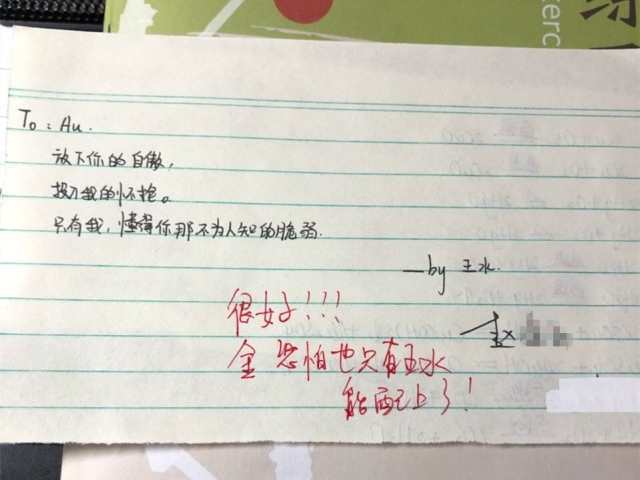 erc
To: Au.
放下你的自傲,
投入我的怀抱。
只有我,懂得你那不为人知的脆弱.
—by 王水.
很好!!!
金恐怕也只有王水
能配上了!